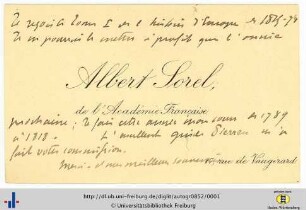 Je reçois le tome I de l'histoire d'Europe de 1815-78
Je ne pourrai le mettre à profit que l'année
Albert Sorel,
de l'Académie Française
prochaine; Je fais cette année mon cours de 1789
à 1818 - L'excellent guide m'a
fait votre commission.
Merci et mon meilleur souvenir
rue de Vaugirard
http://dl.ub.uni-freiburg.de/diglit/autogr0852/0001
Universitätsbibliothek Freiburg
Baden-Württemberg